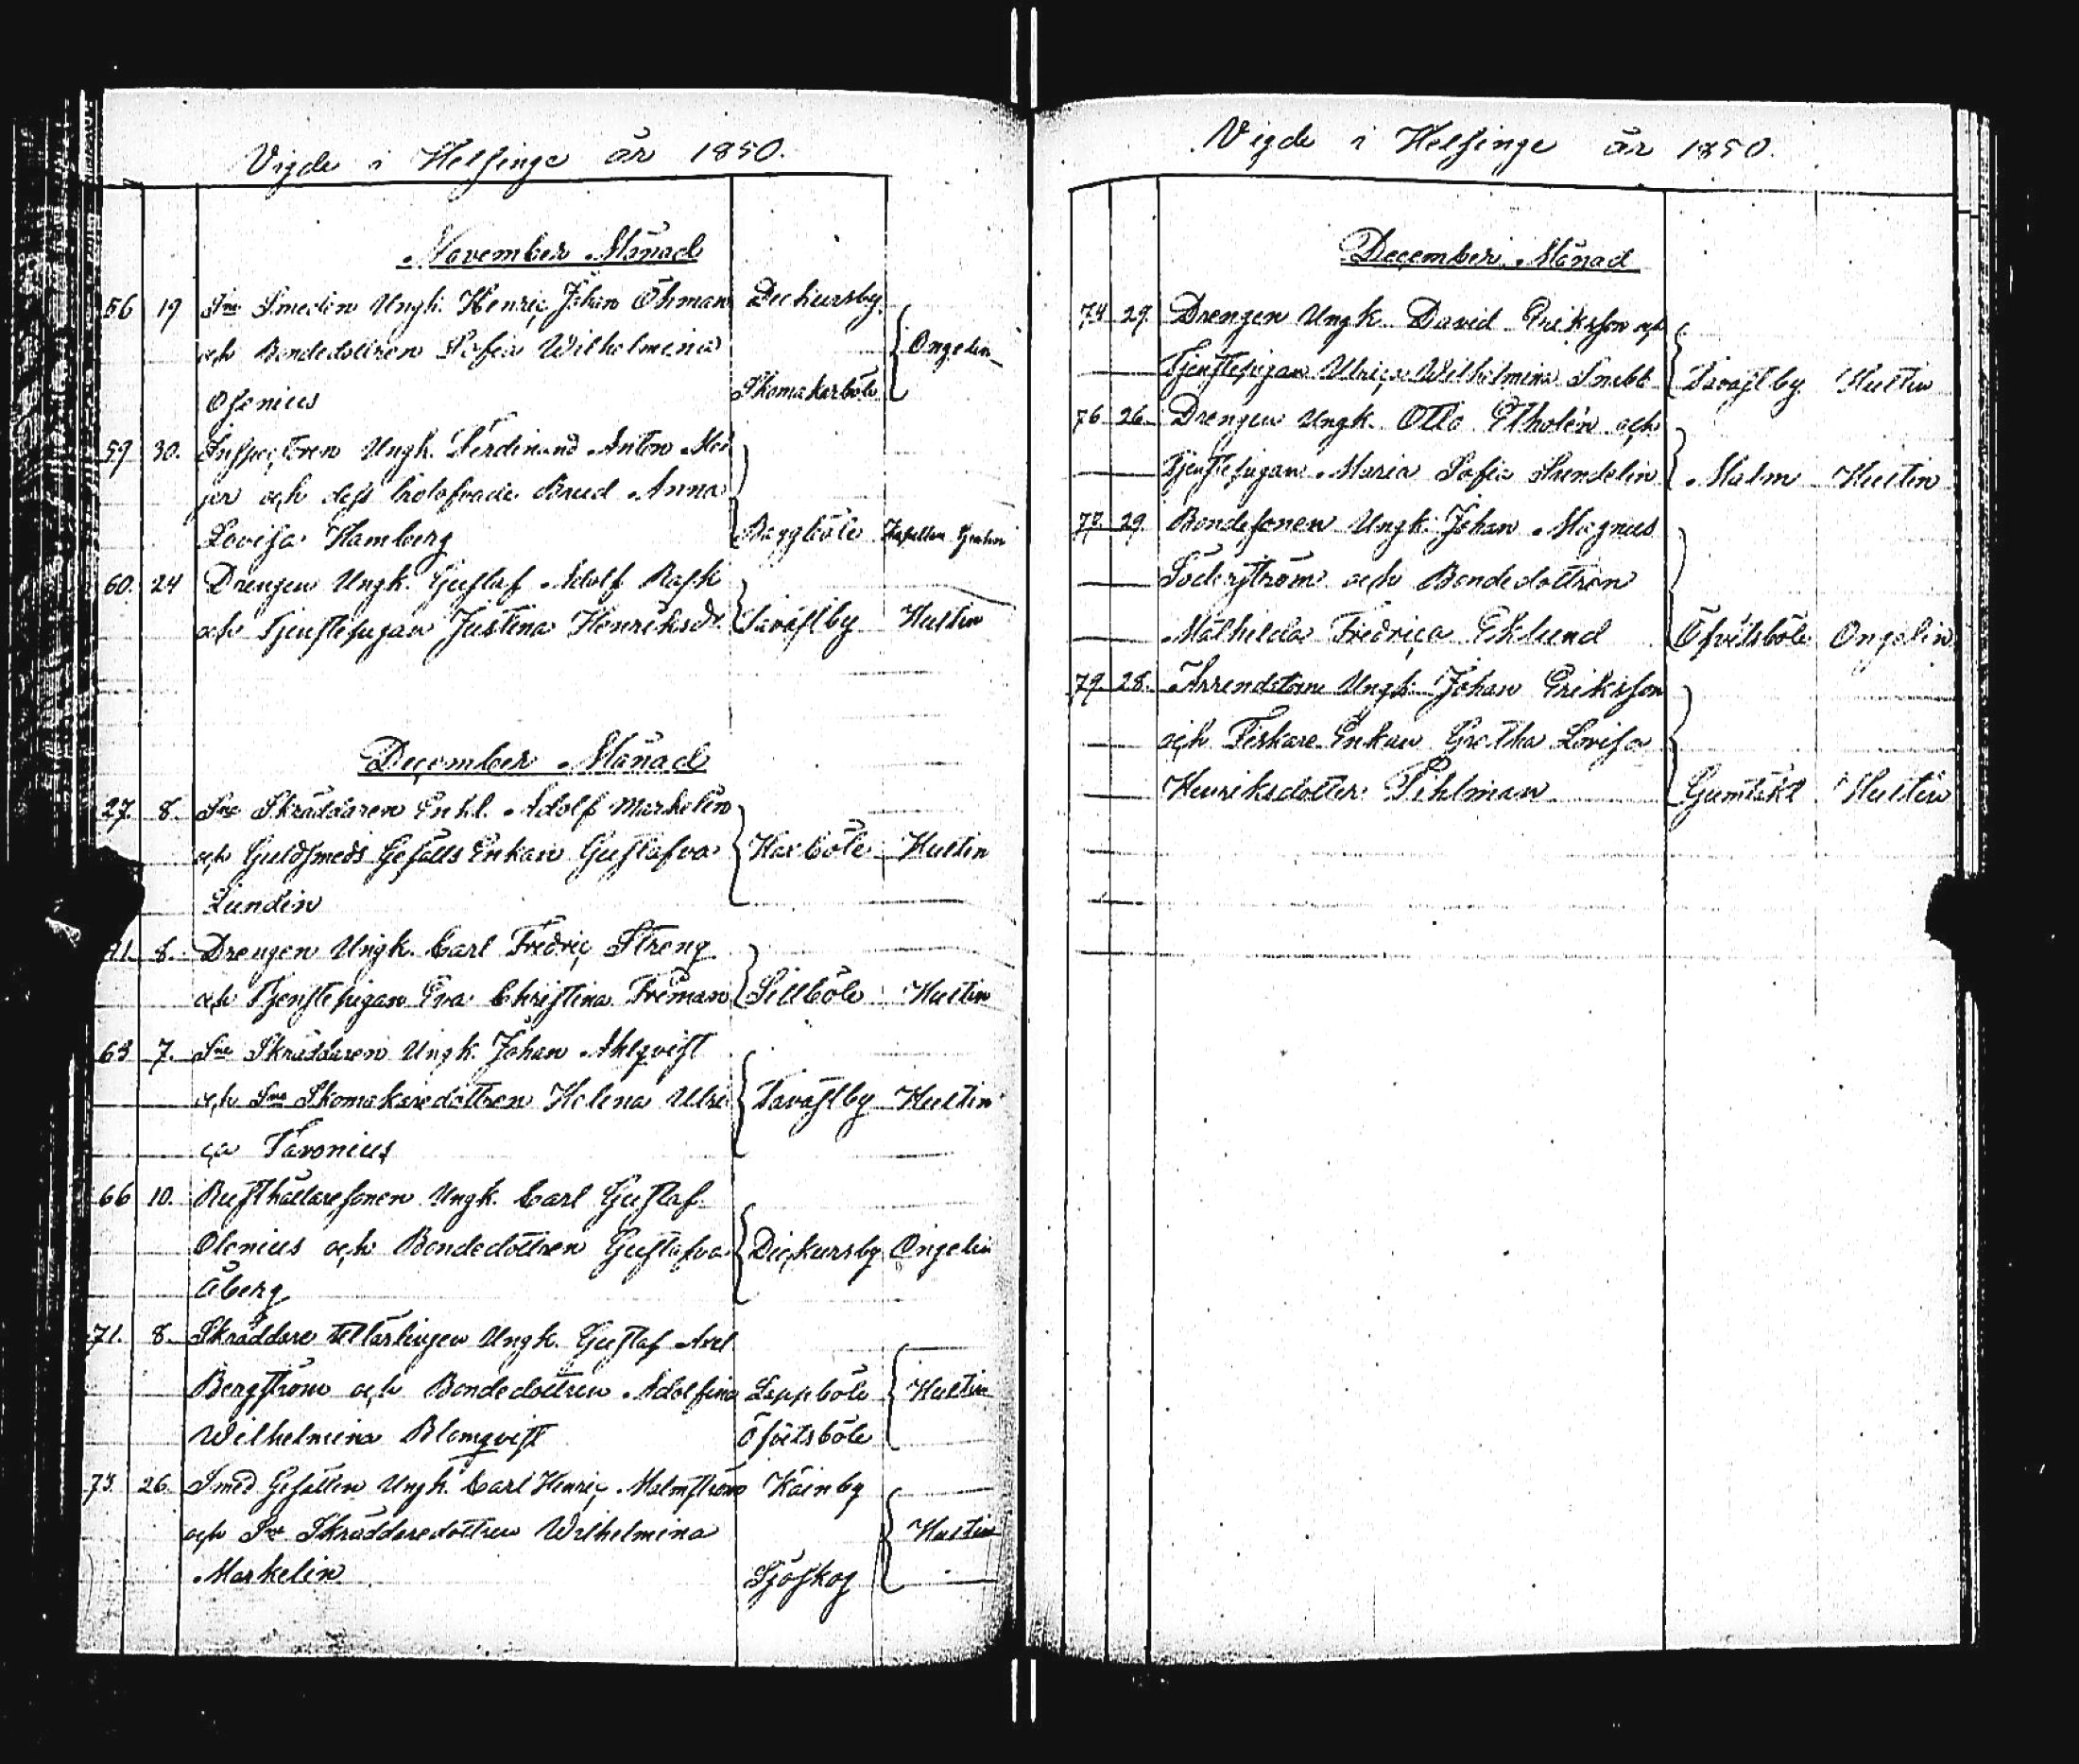 Vigde i Helsinge år 1850.
November Månad
56 19 Sne Smeden Ungk. Henric Johan Öhman Dickursby
och Bondedottren Sofia Wilhelmina Ongelin
Osenius Skomakarböle
59 30. Inspectoren Ungk. Ferdinand Anton Mei
jer och dess trolofvade Brud Anna
Lovisa Hamberg Baggböle Kapellan
60. 24 Drengen Ungk. Gustaf Adolf Rask
och Tjenstepigan Justina Henriksdr Tavastby Hustin
December Månad
27. 8. Sne Skräddaren Enkl. Adolf Markelin
och Guldsmeds Gesälls Enkan Gustafva Haxböle Hustin
Lundin
8. Drengen Ungk. Carl Fredric Streng
och Tjenstepigan Eva Christina Friman Sillböle Hustin
63 7. Sne Skräddaren Ungk. Johan Ahlqvist
och Sne Skomakaredottren Helena Ulri Tavastby Hustin
ca Favonius
66 10. Rusthållaresonen Ungk. Carl Gustaf
Olenius och Bondedottren Gustafva Dickursby Ongelin
Åberg
71. 8. Skräddare Ungk. Gustaf Axel
Bergström och Bondedottren Adolfina Leppböle Hustin
Wilhelmina Blomqvist Öfvitsböle
73. 26. Smed Gesällen Ungk. Carl Henric Malmström Kåinby
och Sne Skräddaredottren Wilhelmina Hustin
Markelin Sjöskog
Vigde i Helsinge år 1850.
December Månad
74 29. Drengen Ungk. David Eriksson och
Tjenstepigan Ulrica Wilhelmina Snabb Tavastby Hustin
76 26. Drengen Ungk. Otto Etholén och
Tjenstepigan Maria Sofia Sundelin Malm Hustin
78. 29. Bondesonen Ungk. Johan Magnus
Söderström och Bondedottren
Mathilda Fredrica Eklund Öfvitsböle Ongelin
79. 28. Arrendatorn Ungk. Johan Eriksson
och Fiskare Enkan Gretha Lovisa
Henriksdotter Pihlman Gumtäkt Hustin